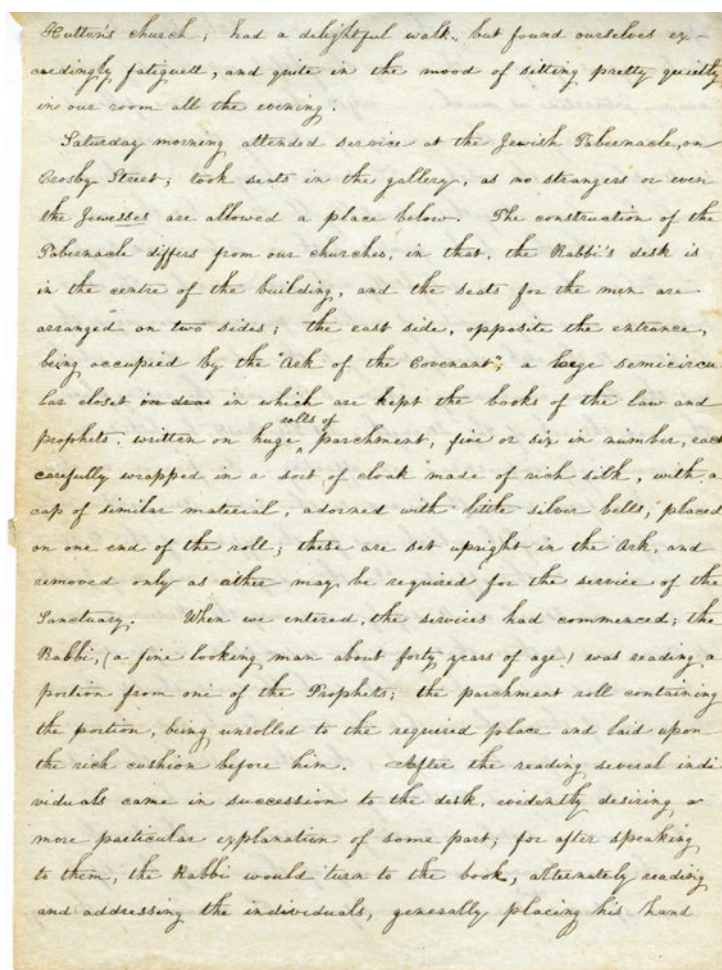 Hutton's church; had a delightful walk, but found ourselves ex-
ceedingly fatigued, and quite in the mood of sitting pretty quietly
in our room all the evening.
Saturday morning attended service at the Jewish Tabernacle, on
Crosby Street; took seats in the gallery, as no strangers or even
the Jewesses are allowed a place below. The construction of the
Tabernacle differs from our churches, in that, the Rabbi's desk is
in the centre of the building, and the seats for the men are
arranged on two sides; the east side, opposite the entrance,
being occupied by the "Ark of the Covenant"; a large semicircu
lar closet in which are kept the books of the law and
rolls of
prophets. written on huge ‸ parchment, five or six in number, each
carefully wrapped in a sort of cloak made of rich silk, with a
cap of similar material, adorned with little silver bells, placed
on one end of the roll; these are set upright in the Ark, and
removed only as either may be required for the service of the
Sanctuary. When we entered, the services had commenced; the
Rabbi, (a fine looking man about forty years of age) was reading a
portion from one of the Prophets; the parchment roll containing
the portion, being unrolled to the required place and laid upon
the rich cushion before him. After the reading several indi
viduals came in succession to the desk, evidently desiring a
more particular explanation of some part; for after speaking
to them, the Rabbi would turn to the book, alternately reading
and addressing the individuals, generally placing his hand